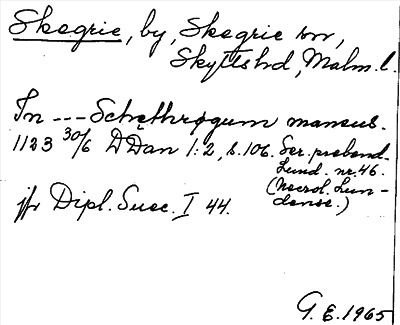 Skegrie, by, Skegrie sn,
Skytts hd, Malm. l.
In --- Schęthrøgum mansus.
1123 30/6 DDan 1:2, s. 106. Ser. prebend.
Lund. nr. 46.
(Necrol. Lun-
dense.)
jfr Dipl. Suec. I 44.
G. E. 1965